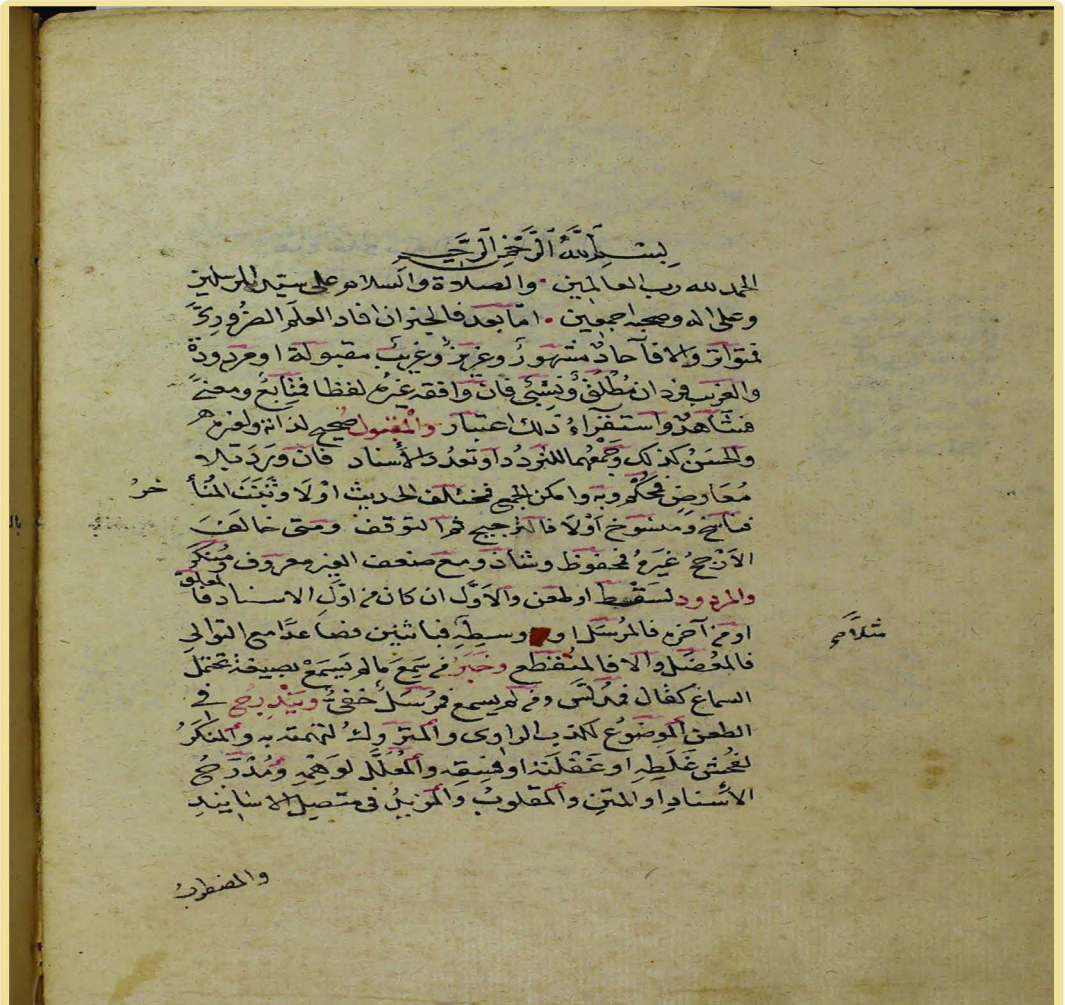 بسم الله الرحمن الرحيم
الحمد لله رب العالمين . والصلاة والسلام على سيد المرسلين
وعلى اله وصحبه اجمعين . امّا بعد فالخبر ان افاد العلم الضرُورِيَّ
فمتواتر والا فآحادٌ مشهورٌ وعزيزٌ وغريبٌ مقبولة او مردودة
والغريب فردان مُطْلَقٌ ونِسْبِيٌّ فان وافقه غيرُه لفظا فمُتابِعٌ ومعنىً
فشاهدٌ واستقراءُ ذلك اعتبار والمقبول صحيح لذاته ولغيره
والحَسَنُ كذلك وجَمْعُهما للتردُّد او تعدُد الأسناد فان وَرَدَ بلا
مُعَارِضٍ فمحْكَم وبه وامكن الجمع فمختلف الحديث اوْلَا وثَبَتَ المُتأ
خرُ
فناسخ ومنسوخ اوْلَا فالترجيح ثم التوقف ومتى خالَفَ
الأَرْجَحُ غيرَهُ فمحفوظ وشاذ ومع ضعف الغير معروف ومُنكَر
والمردود لسَقْط او طعن والأوّل ان كان من اوّل الاسناد فا
لمعلق
او من آخره فالمرُسَل او وسطِهِ فباثنين فصاعدًا مع التوالي
مثلاً صح
فالمُعْضَل والا فالمنقطع وخَبَرُ من سَمِعَ ما لم يَسمَعْ بصيغة تحتمل
السماعَ كقال فمدلَّس ومن لم يسمع فمُرْسَلٌ خفيٌّ ويَنْدرِجُ في
الطعن الموضُوعُ لكذب الراوى والمتروكُ لتهمته به والمنكَرُ
لفُحشِ غَلَطِهِ او غَفْلَتِهِ او فِسقِهِ والمُعَلَّلُ لوَهْمِهِ ومُدْرَجُ
الأسنادِ او المَتنِ والمقلوبُ والمَزيدُ فى متصِل الاسانيدِ
والمضطربُ